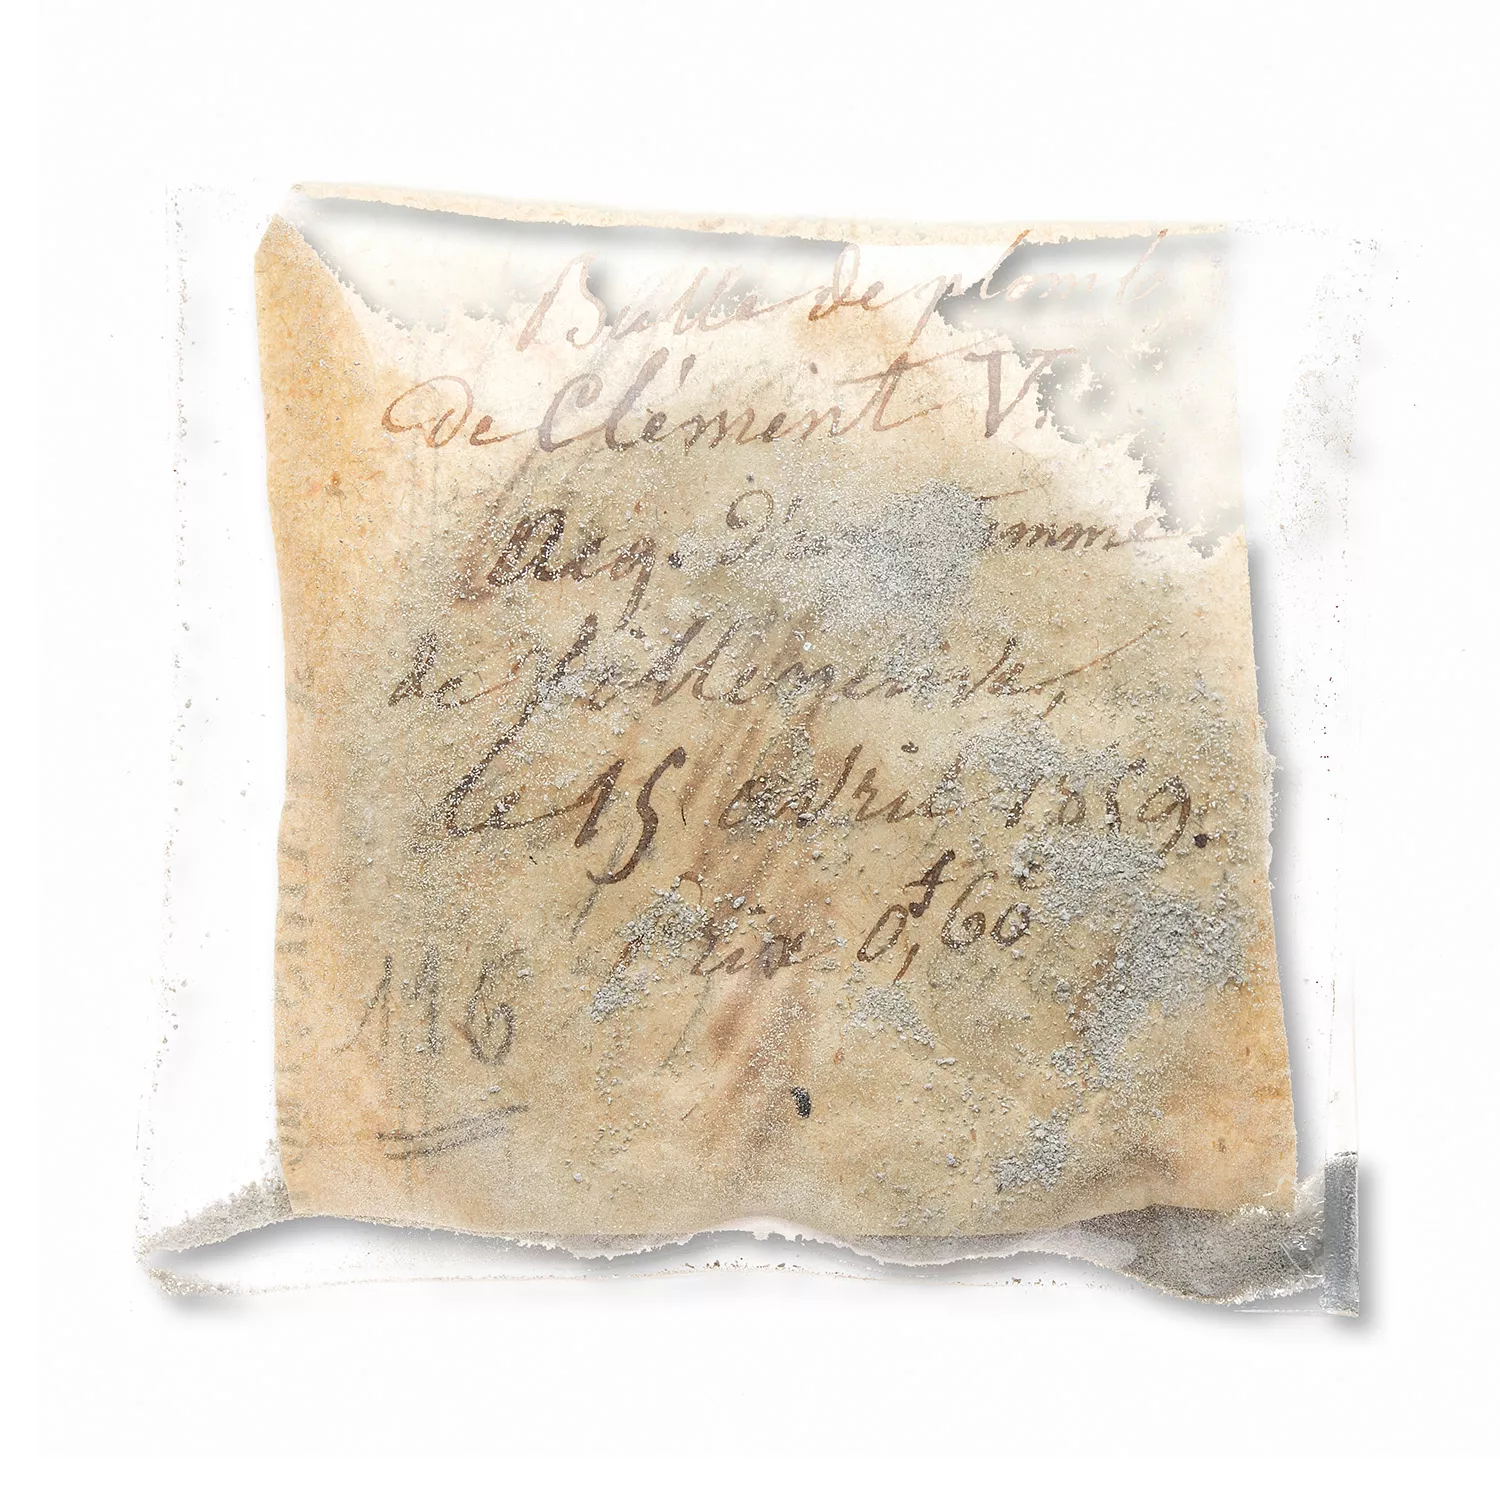 Bulle de plomb
de Clément V.
Acq. d'une femme
de
le 15 avril 1859.
Prix 0,60
116